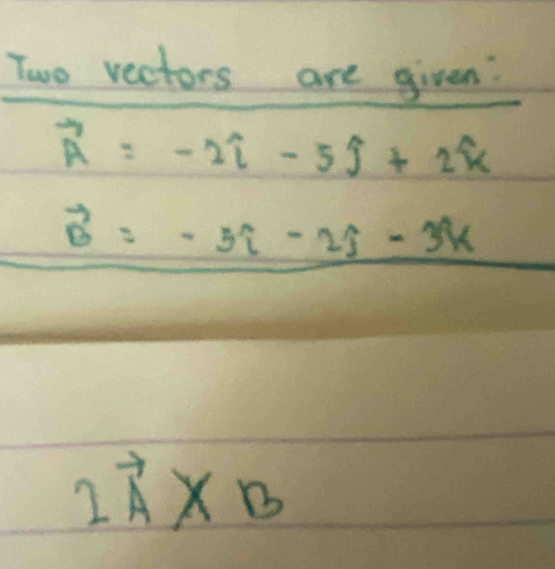 Two vectors are given:
A⃗ = -2î - 5ĵ + 2k̂
B⃗ = - 5î - 2ĵ - 3k̂
2A⃗ X B